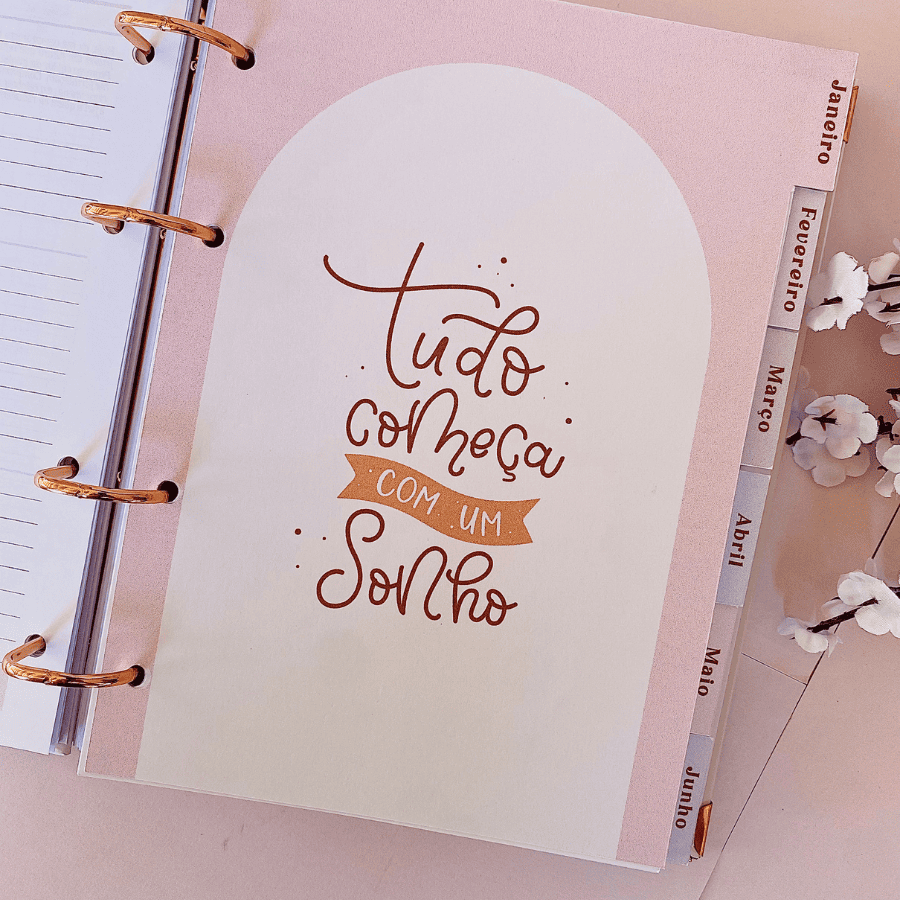 Tudo
começa
COM UM
Sonho
Janeiro
Fevereiro
Março
Abril
Maio
Junho